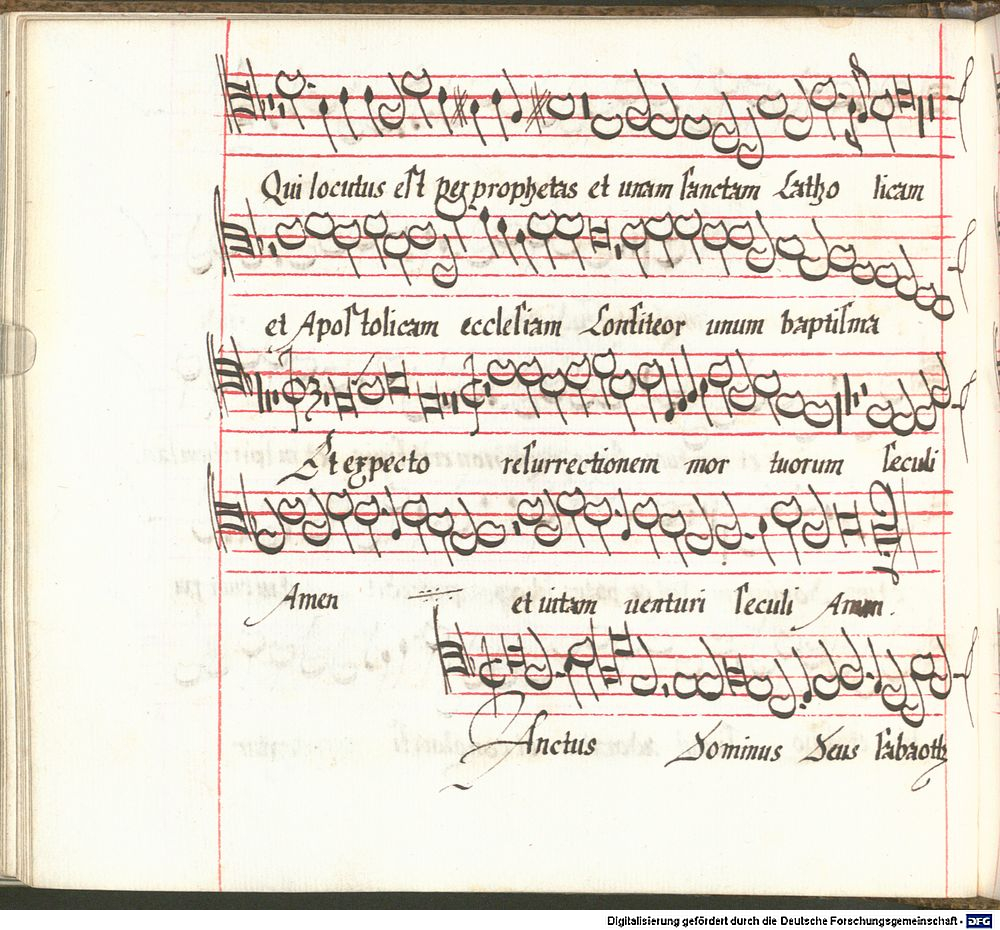 Qui locutus est per prophetas et unam sanctam Catho licam
et Apostolicam ecclesiam Confiteor unum baptisma
Et expecto resurrectionem mor tuorum seculi
Amen et uitam uenturi seculi Amen.
Sanctus Dominus Deus sabaoth
Digitalisierung gefördert durch die Deutsche Forschungsgemeinschaft - DFG